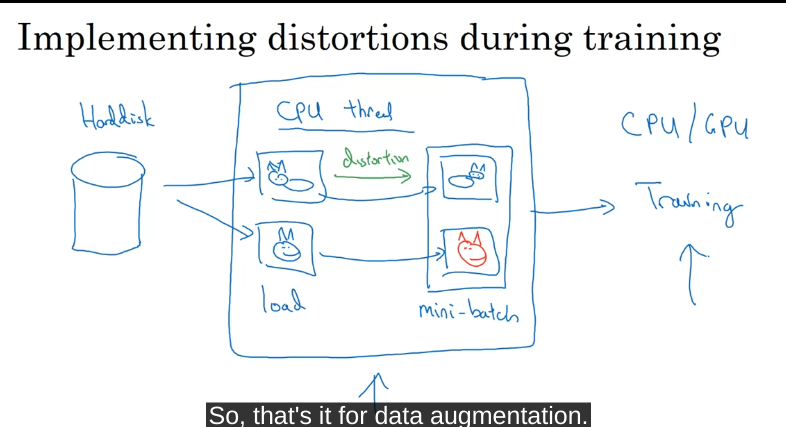 Implementing distortions during training
Harddisk
CPU thread
distortion
load
mini-batch
CPU/GPU
Training
So, that's it for data augmentation.